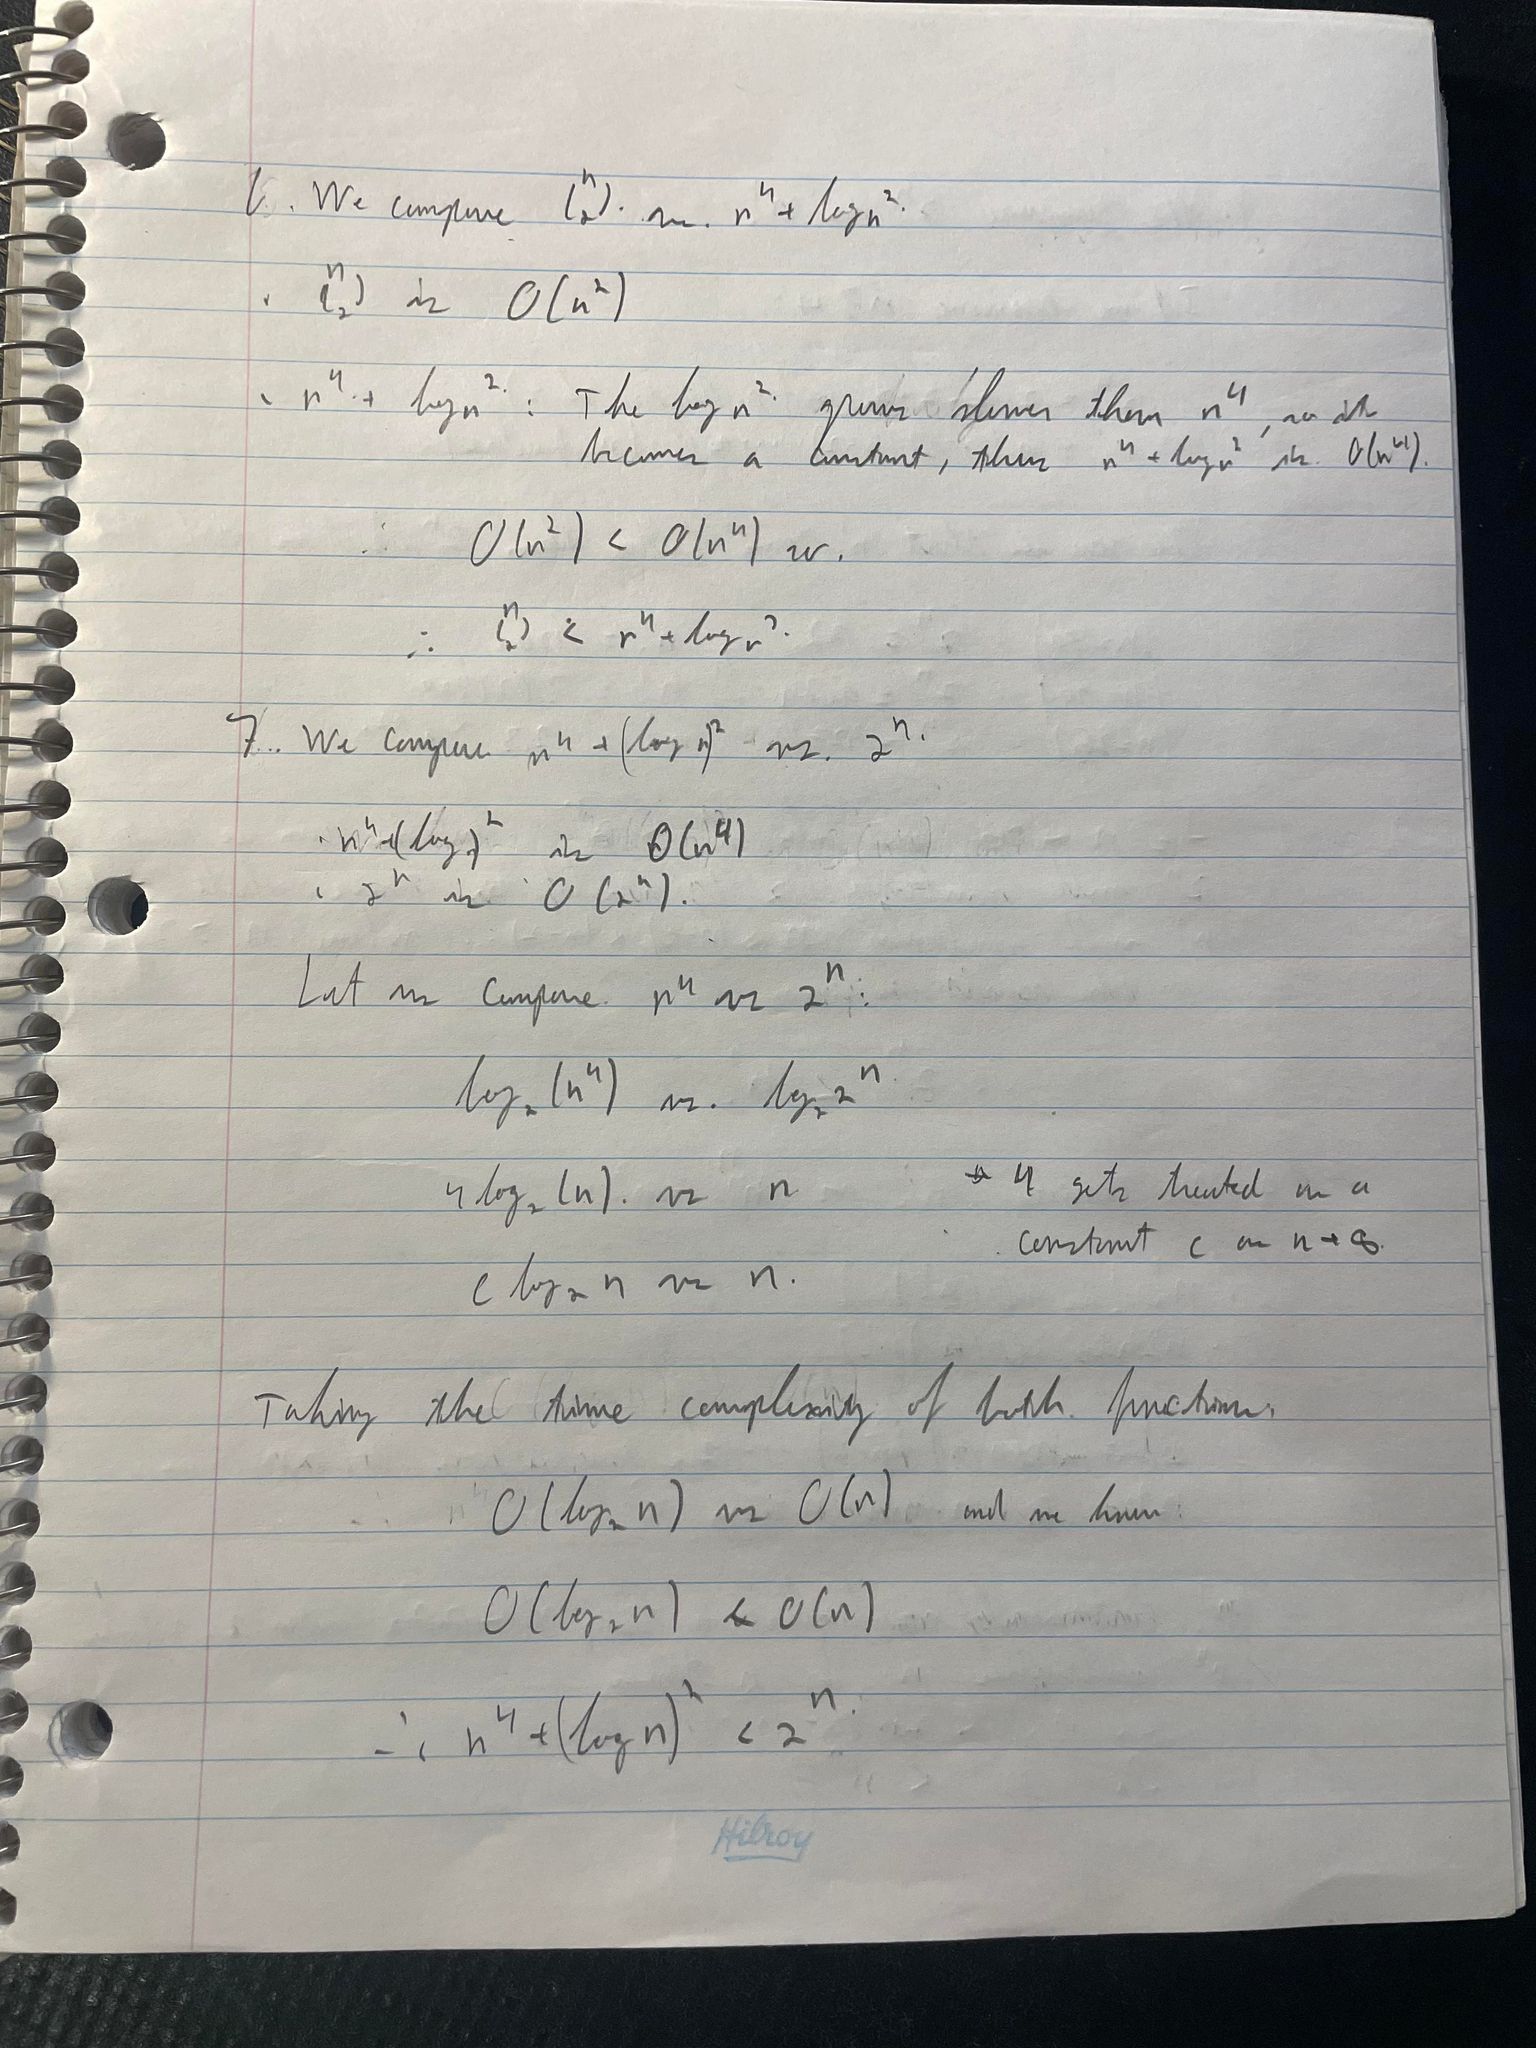 6. We compare (n 2). vs. n⁴ + log n².
· (n 2) is O(n²)
· n⁴ + log n² : The log n² grows slower than n⁴, so it
becomes a constant, thus n⁴ + log n² is O(n⁴).
∴ O(n²) < O(n⁴) so.
∴ (n 2) < n⁴ + log n².
7. We compare n⁴ + (log n)² vs. 2ⁿ.
· n⁴ + (log n)² is O(n⁴)
· 2ⁿ is O(2ⁿ).
Let us compare n⁴ vs 2ⁿ:
log₂(n⁴) vs. log₂2ⁿ
4 log₂(n). vs n * 4 gets treated as a
constant c as n → ∞.
c log₂ n vs n.
Taking the time complexity of both functions,
O(log₂ n) vs O(n) and we know:
O(log₂ n) < O(n)
∴ n⁴ + (log n)² < 2ⁿ.
Hilroy